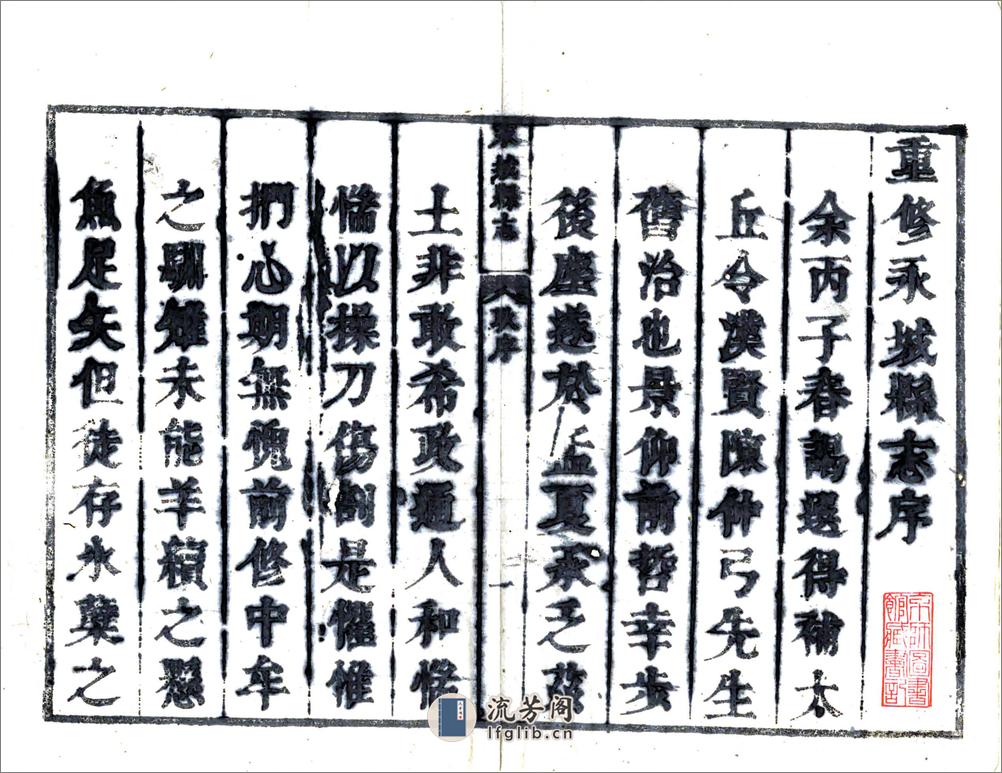 重修永城縣志序
余丙子春謁選得補太
丘令漢賢陳仲弓先生
舊治也景仰前哲幸步
後塵遂於孟夏承乏茲
永城縣志
序
一
土非敢希政通人和惴
惴以操刀傷割是懼惟
捫心期無愧前修中牟
之馴雉未能羊續之懸
魚足矣但徒存氷蘗之
流芳阁
lfglib.cn